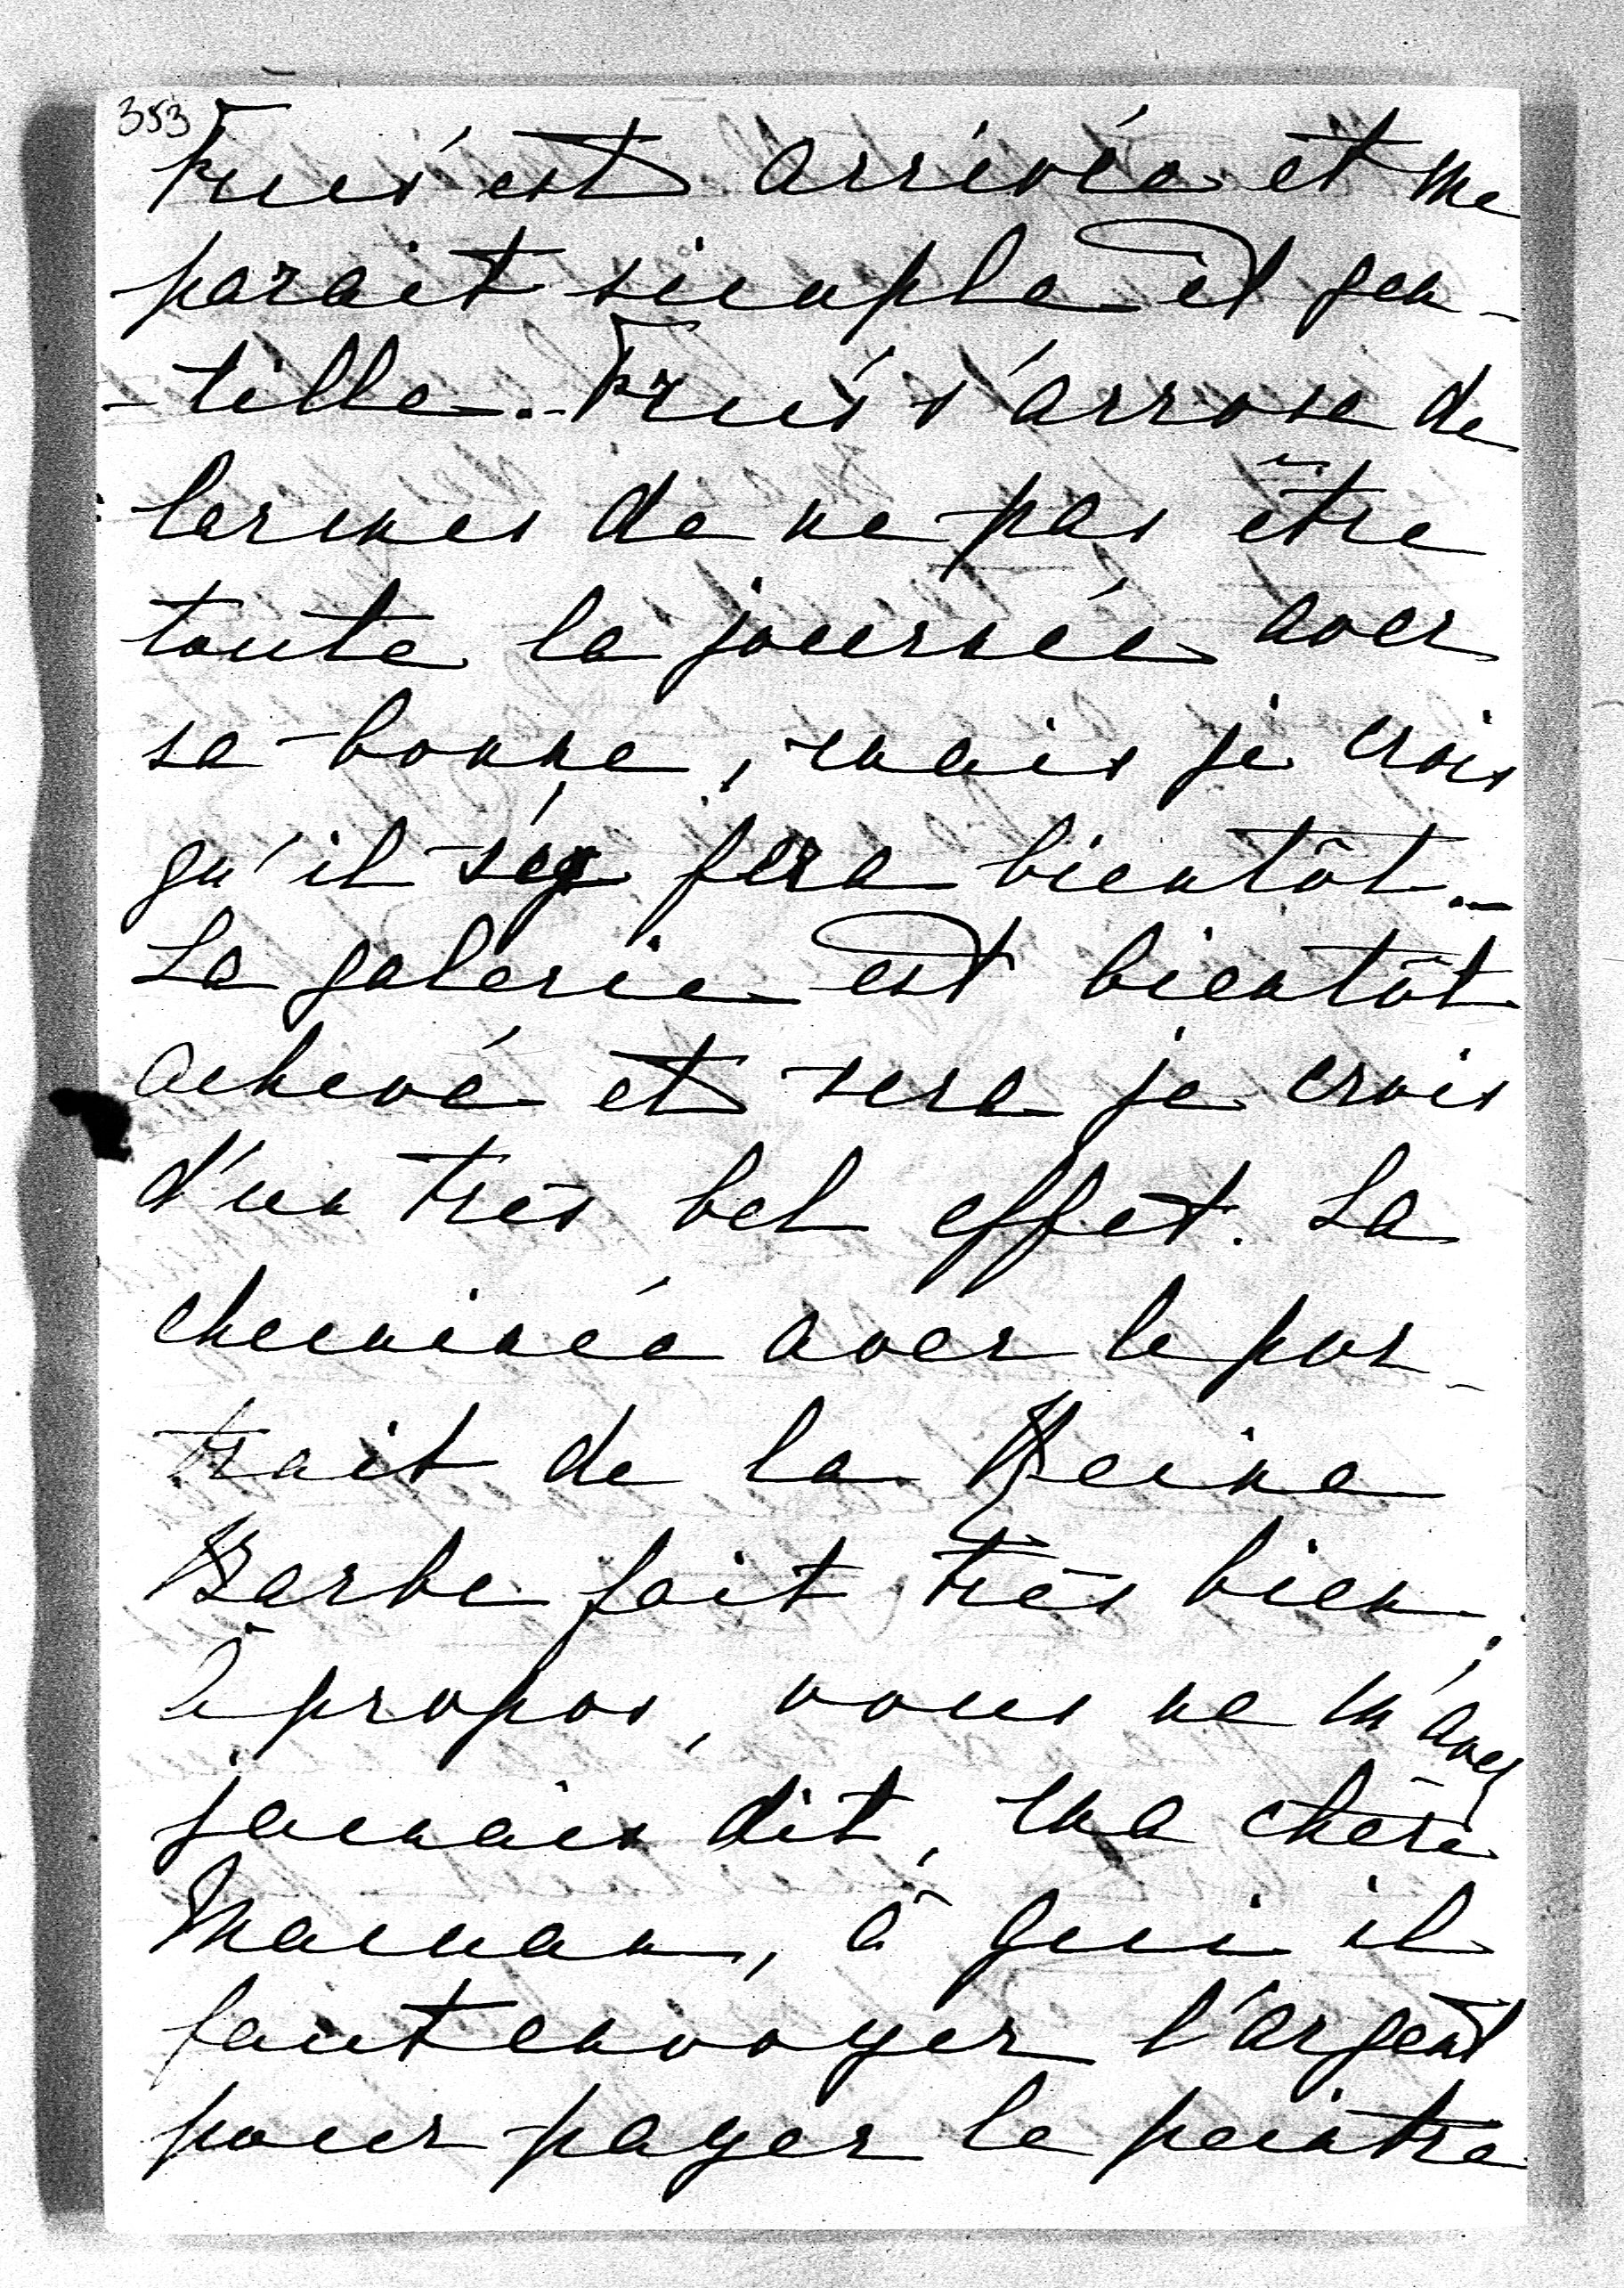 353
Friés est arrivée et me
parait simple et gen-
-tille. - Friés s'arrose de
larmes de ne pas être
toute la journée avec
sa bonne, mais je crois
qu'il s'y fera bientôt. -
La galerie est bientôt
achevé et sera je crois
d'un très bel effet. La
cheminée avec le por-
trait de la Reine
Barbe fait très bien.
À propos, vous ne m'avez
jamais dit, ma chère
Maman, à qui il
faut envoyer l'argent
pour payer le peintre